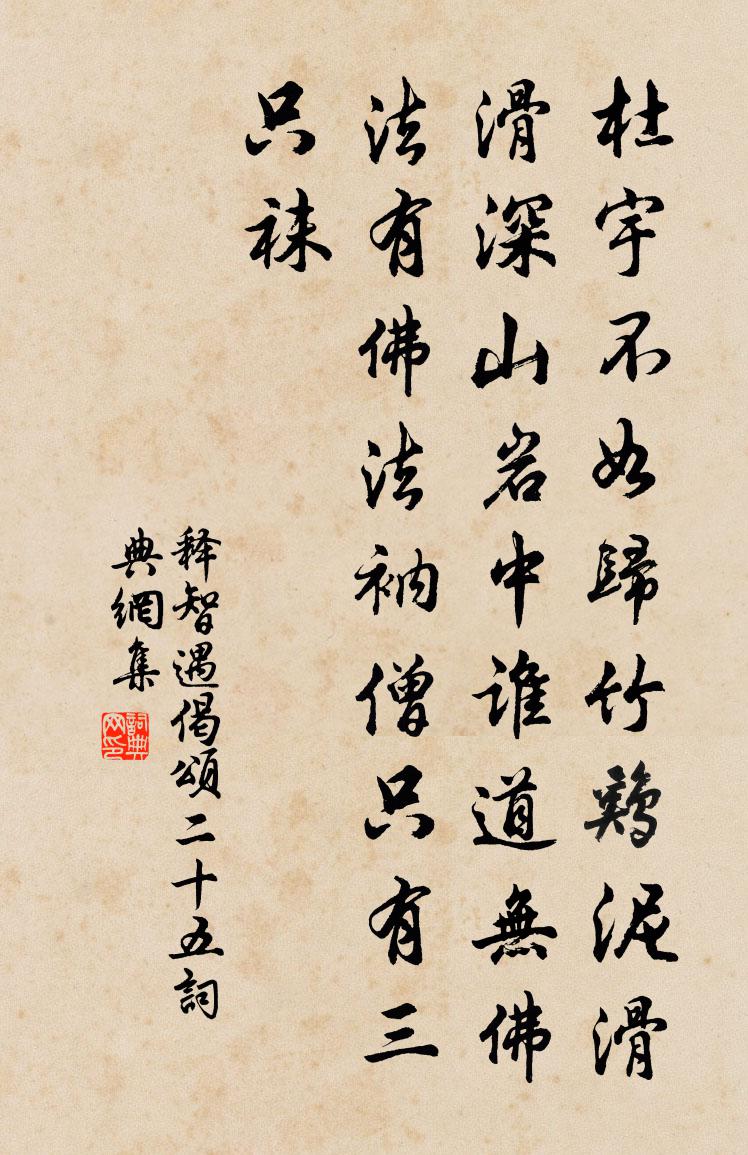 杜宇不如歸竹鷄泥滑
滑深山岩中誰道無佛
法有佛法衲僧只有三
只袜
释智遇偈頌二十五詞
典網集
詞典网印